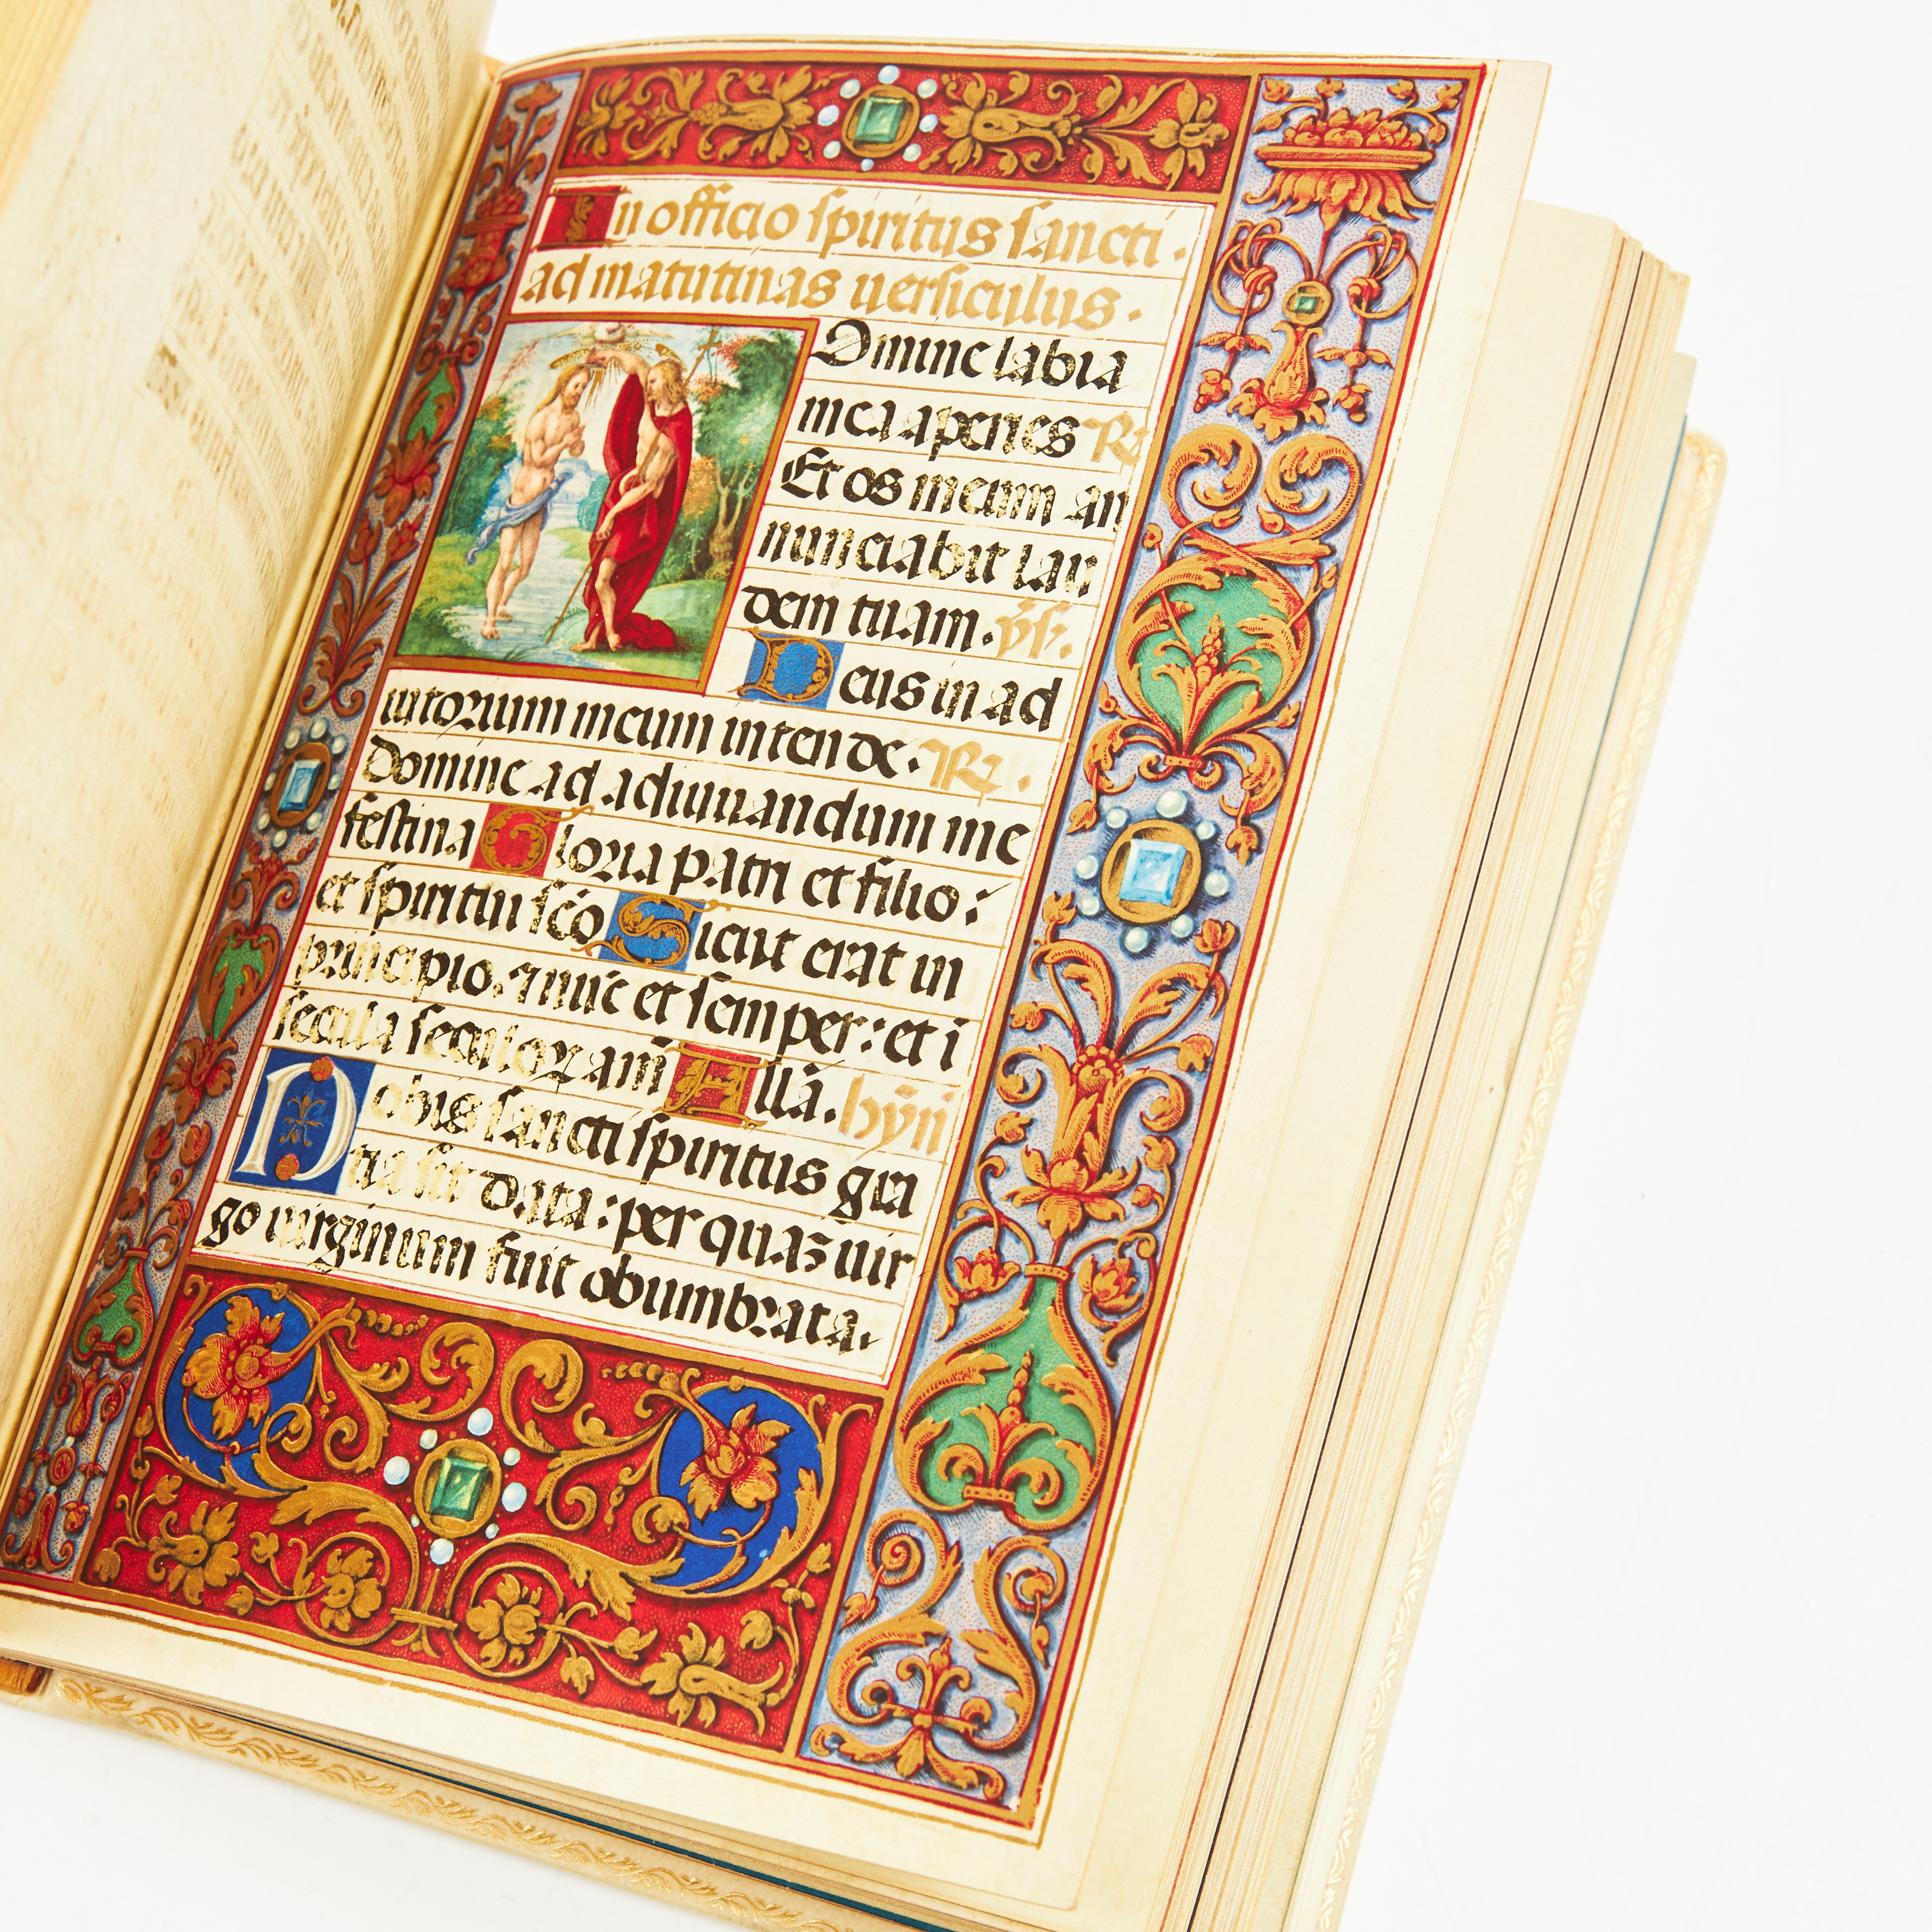 In officio spiritus sancti.
ad matutinas uersiculus.
Dmine labia
mea aperies R
Et os meum an
nunciabit lau
dem tuam. ṽs.
Deus in ad
iutorium meum intende. R.
Domine ad adiuuandum me
festina Gloria patri et filio:
et spiritui sc̄o Sicut erat in
principio, ⁊ nūc et semper: et ī
secula seculoꝝ am̄ Allā. hȳn
Nobis sancti spiritus gra
tia sit data: per quā uir
go uirginum fuit obumbrata.